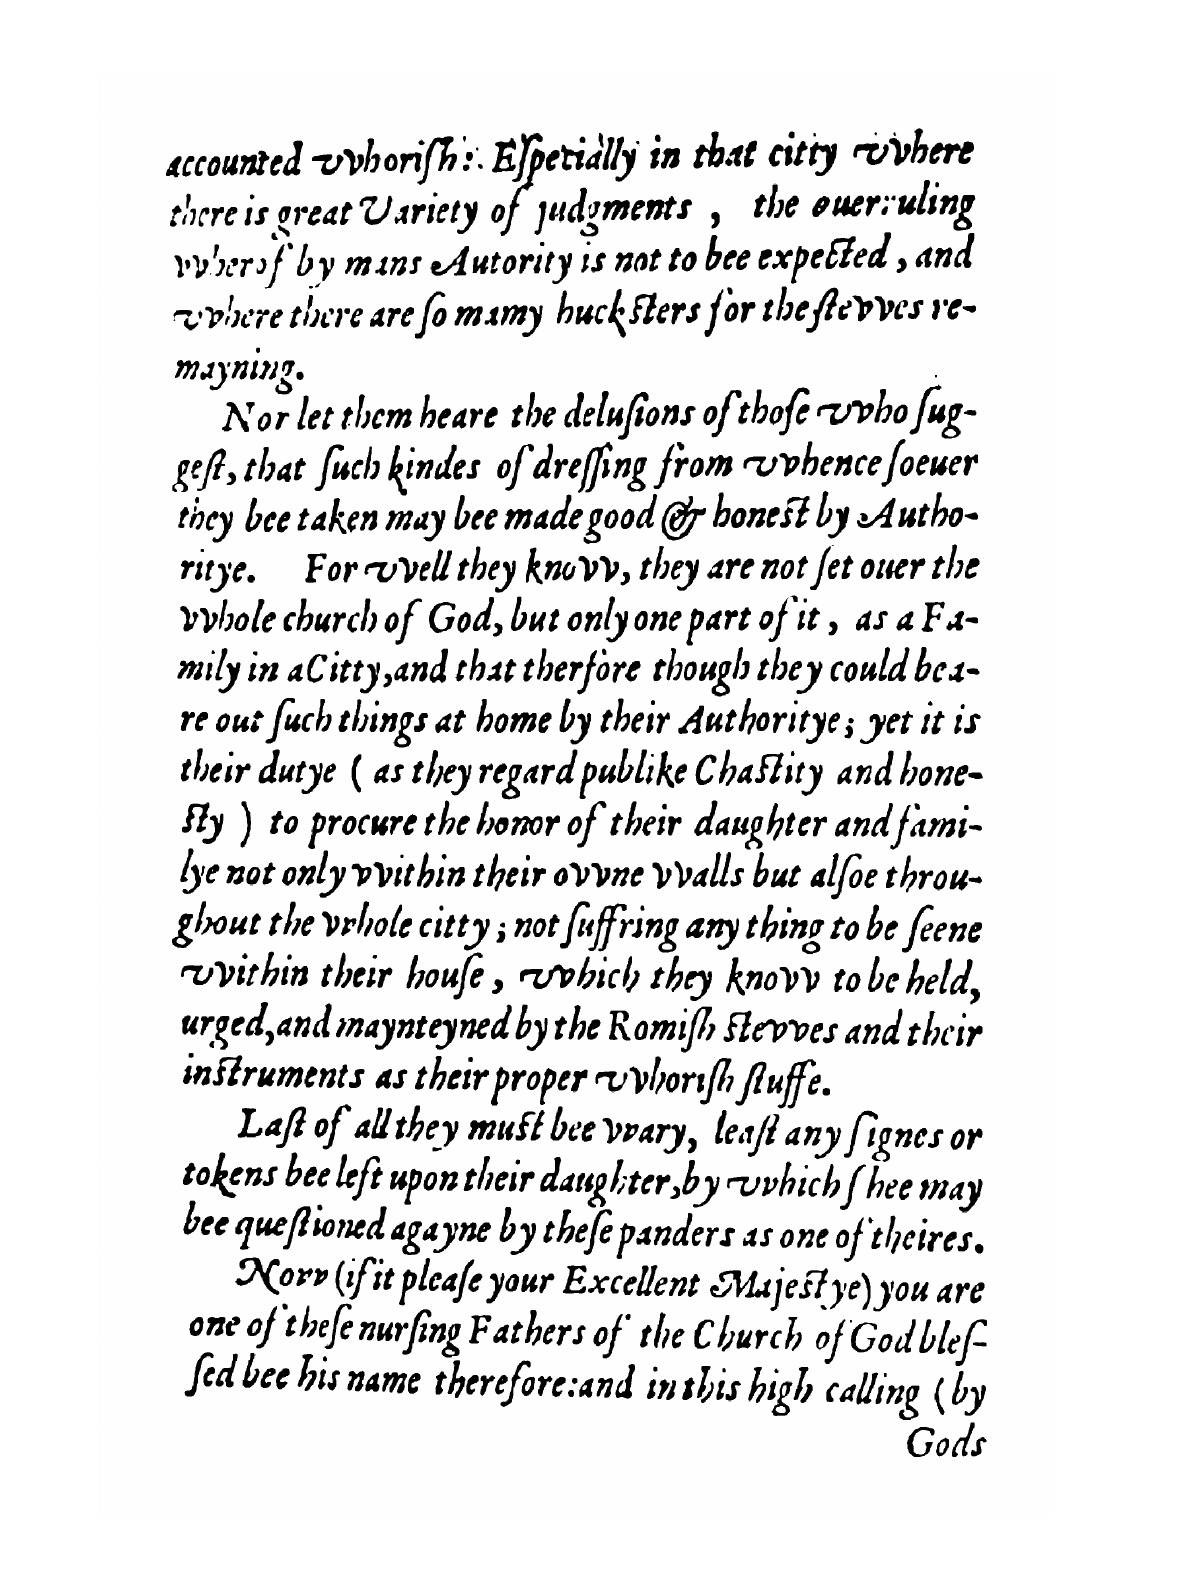 accounted vvhoriſh: Eſpetially in that citty vvhere
there is great Variety of judgments , the ouerruling
vvherof by mans Autority is not to bee expected , and
vvhere there are ſo mamy huckſters for the ſtevves re-
mayning.
Nor let them heare the deluſions of thoſe vvho ſug-
geſt, that ſuch kindes of dreſſing from vvhence ſoeuer
they bee taken may bee made good & honeſt by Autho-
ritye. For vvell they knovv, they are not ſet ouer the
vvhole church of God, but only one part of it , as a Fa-
mily in a Citty,and that therfore though they could bea-
re out ſuch things at home by their Authoritye; yet it is
their dutye ( as they regard publike Chaſtity and hone-
ſty ) to procure the honor of their daughter and fami-
lye not only vvithin their ovvne vvalls but alſoe throu-
ghout the vrhole citty ; not ſuffring any thing to be ſeene
vvithin their houſe , vvhich they knovv to be held,
urged,and maynteyned by the Romiſh ſtevves and their
inſtruments as their proper vvhoriſh ſtuffe.
Laſt of all they muſt bee vvary, leaſt any ſignes or
tokens bee left upon their daughter,by vvhich ſhee may
bee queſtioned agayne by theſe panders as one of theires.
Novv (if it pleaſe your Excellent Majeſtye) you are
one of theſe nurſing Fathers of the Church of God bleſ-
ſed bee his name therefore:and in this high calling (by
Gods